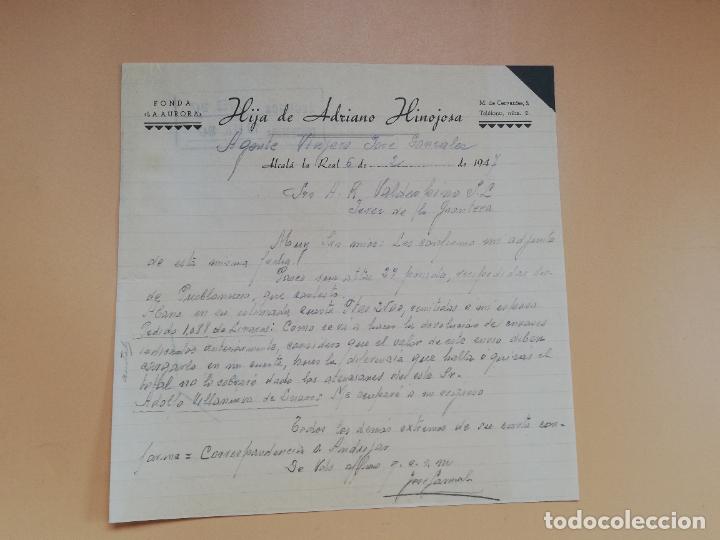 FONDA
«LA AURORA»
Hija de Adriano Hinojosa
M. de Cervantes, 5
Teléfono, núm. 9
Agente Viajero José Gonzalez
Alcalá la Real 6 de 2 de 1947
Sres A. R. Valdespino S.L
Jerez de la Frontera
Muy Sres mios: Les confirmo mi adjunta
de esta misma fecha!
Paseo su atta 29 pasada, recibidas
de Pueblonuevo, que contesto.
Abono en su estimada cuenta Ptas 2400, remitidas a mi esposa
Pedido 1,088 de Linares: Como se va a hacer la devolucion de envases
indicados anteriormente, considero que el valor de este envio deben
cargarlo en mi cuenta, hacer la diferencia que halla o quizas el
total no lo cobraré dado las atenciones del este Sr.
Adolfo Villanueva de Linares Me ocuparé a mi regreso
Todos los demas extremos de su carta con-
forme = Correspondencia a Andujar
De Vds affmo q.e.s.m